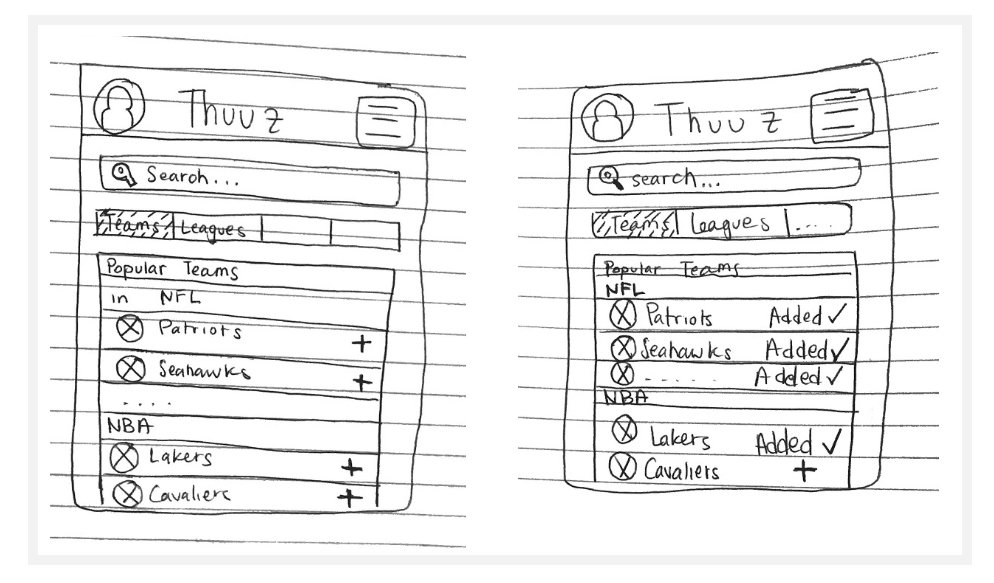 Thuuz
Search...
Teams Leagues
Popular Teams
in NFL
Patriots +
Seahawks +
....
NBA
Lakers +
Cavaliers +
Thuuz
search...
Teams Leagues .....
Popular Teams
NFL
Patriots Added ✓
Seahawks Added ✓
...... Added ✓
NBA
Lakers Added ✓
Cavaliers +